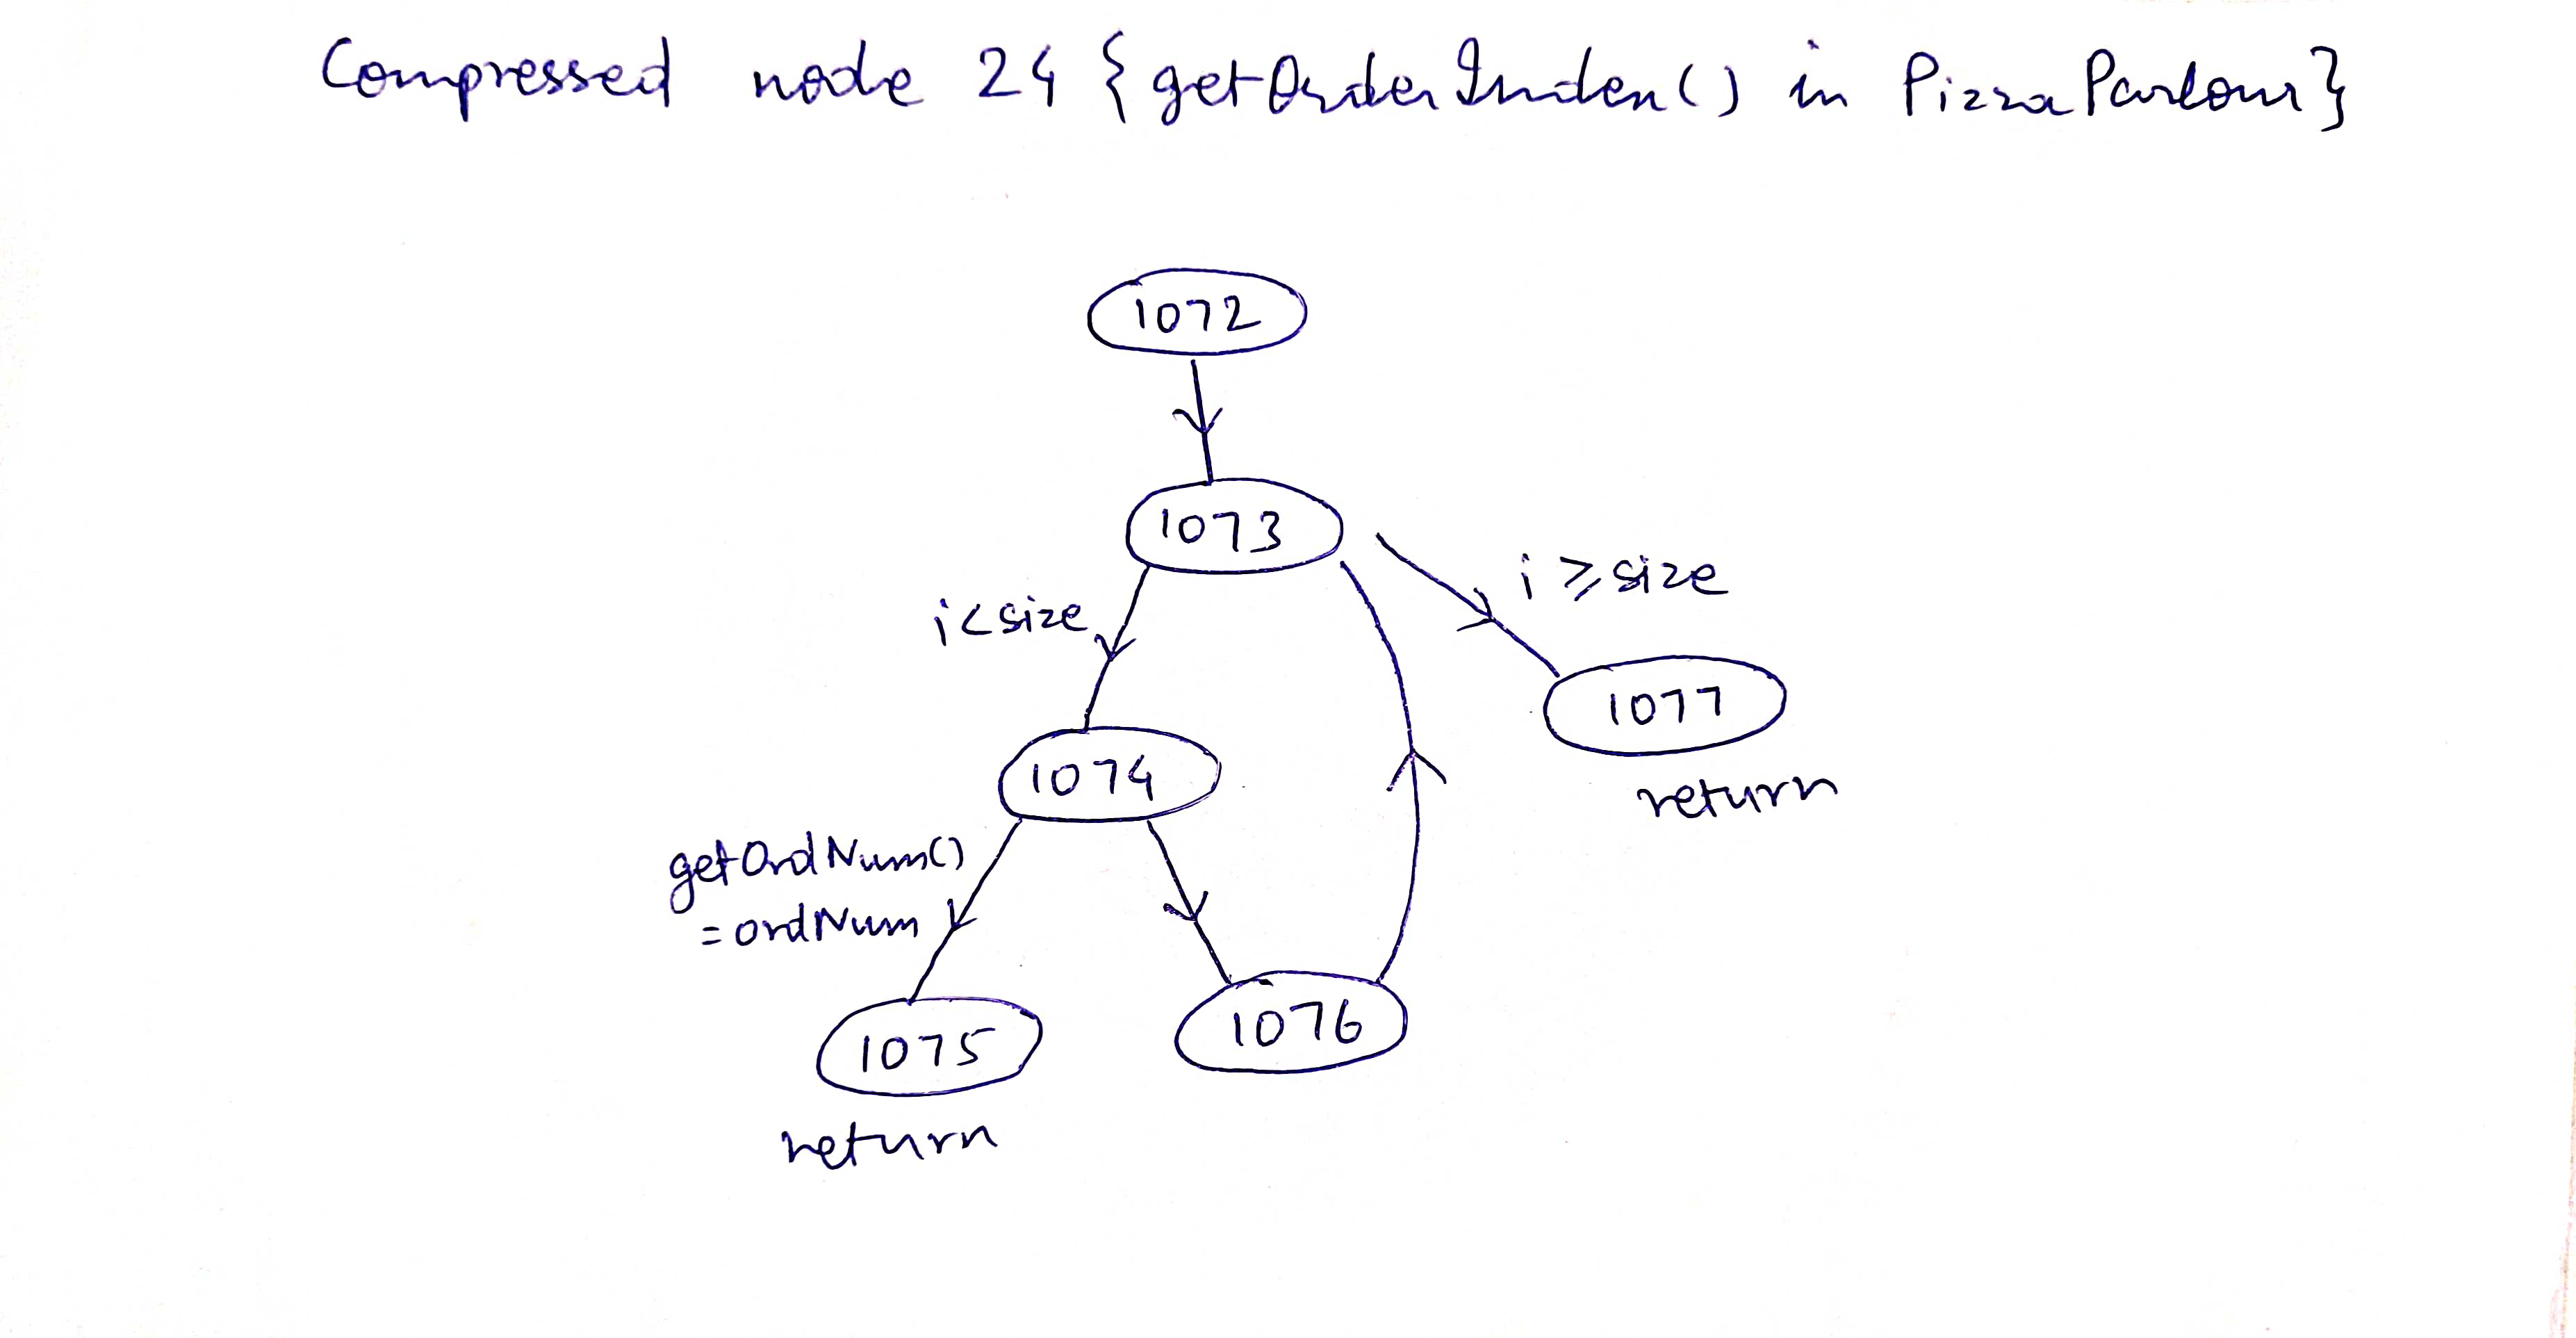 Compressed node 24 {getOrderIndex() in PizzaParlour}
1072
1073
i<size
i ≥ size
1077
return
1074
getOrdNum()
= ordNum
1075
1076
return